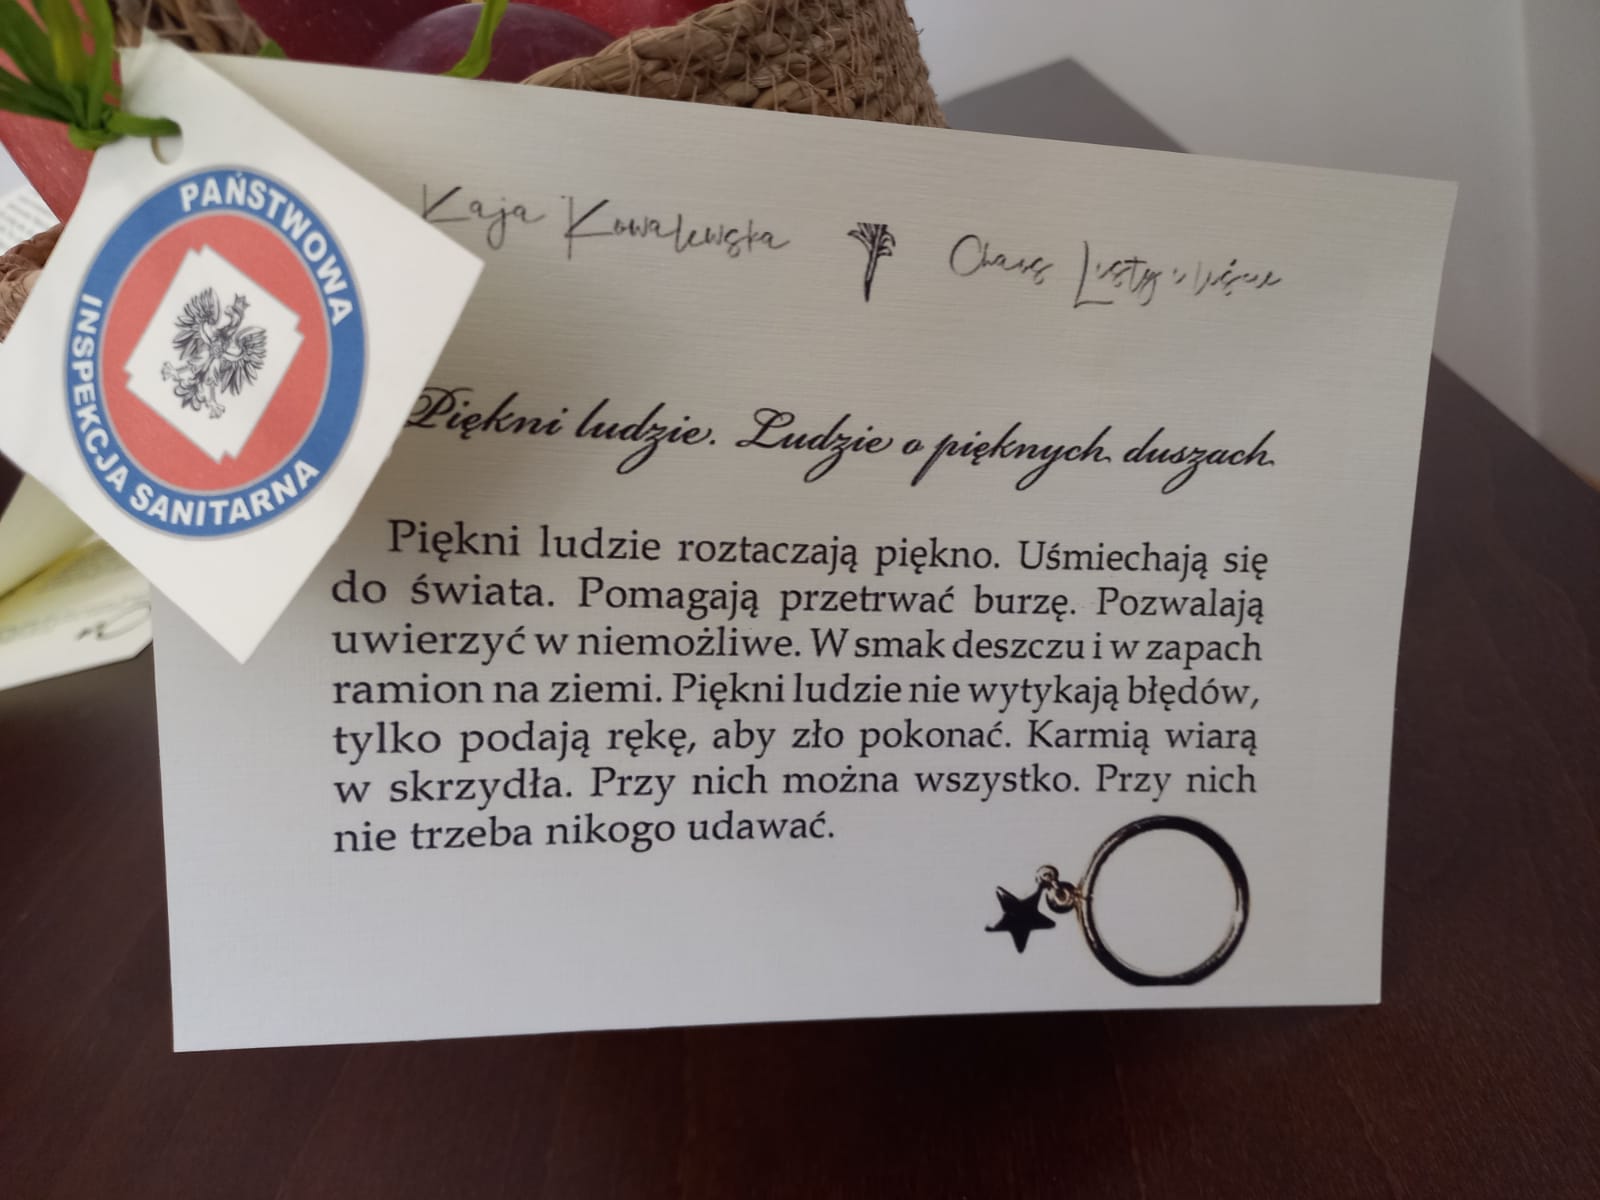 PAŃSTWOWA
INSPEKCJA SANITARNA
Kaja Kowalewska
Piękni ludzie. Ludzie o pięknych duszach
Piękni ludzie roztaczają piękno. Uśmiechają się
do świata. Pomagają przetrwać burzę. Pozwalają
uwierzyć w niemożliwe. W smak deszczu i w zapach
ramion na ziemi. Piękni ludzie nie wytykają błędów,
tylko podają rękę, aby zło pokonać. Karmią wiarą
w skrzydła. Przy nich można wszystko. Przy nich
nie trzeba nikogo udawać.